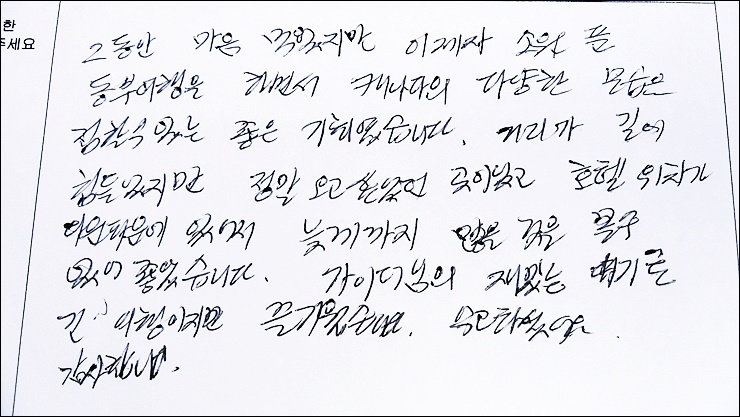 한
주세요
그동안 마음 먹었지만 이제사 소원 푼
동부여행을 하면서 캐나다의 다양한 모습을
접할수 있는 좋은 기회였습니다. 거리가 길어
힘들었지만 정말 오고 싶었던 곳이었고 호텔 위치가
다운타운에 있어서 늦게까지 많은 것을 볼수
있어 좋았습니다. 가이더님의 재밌는 얘기로
긴 여행이지만 즐거웠습니다. 수고하셨어요.
감사합니다.